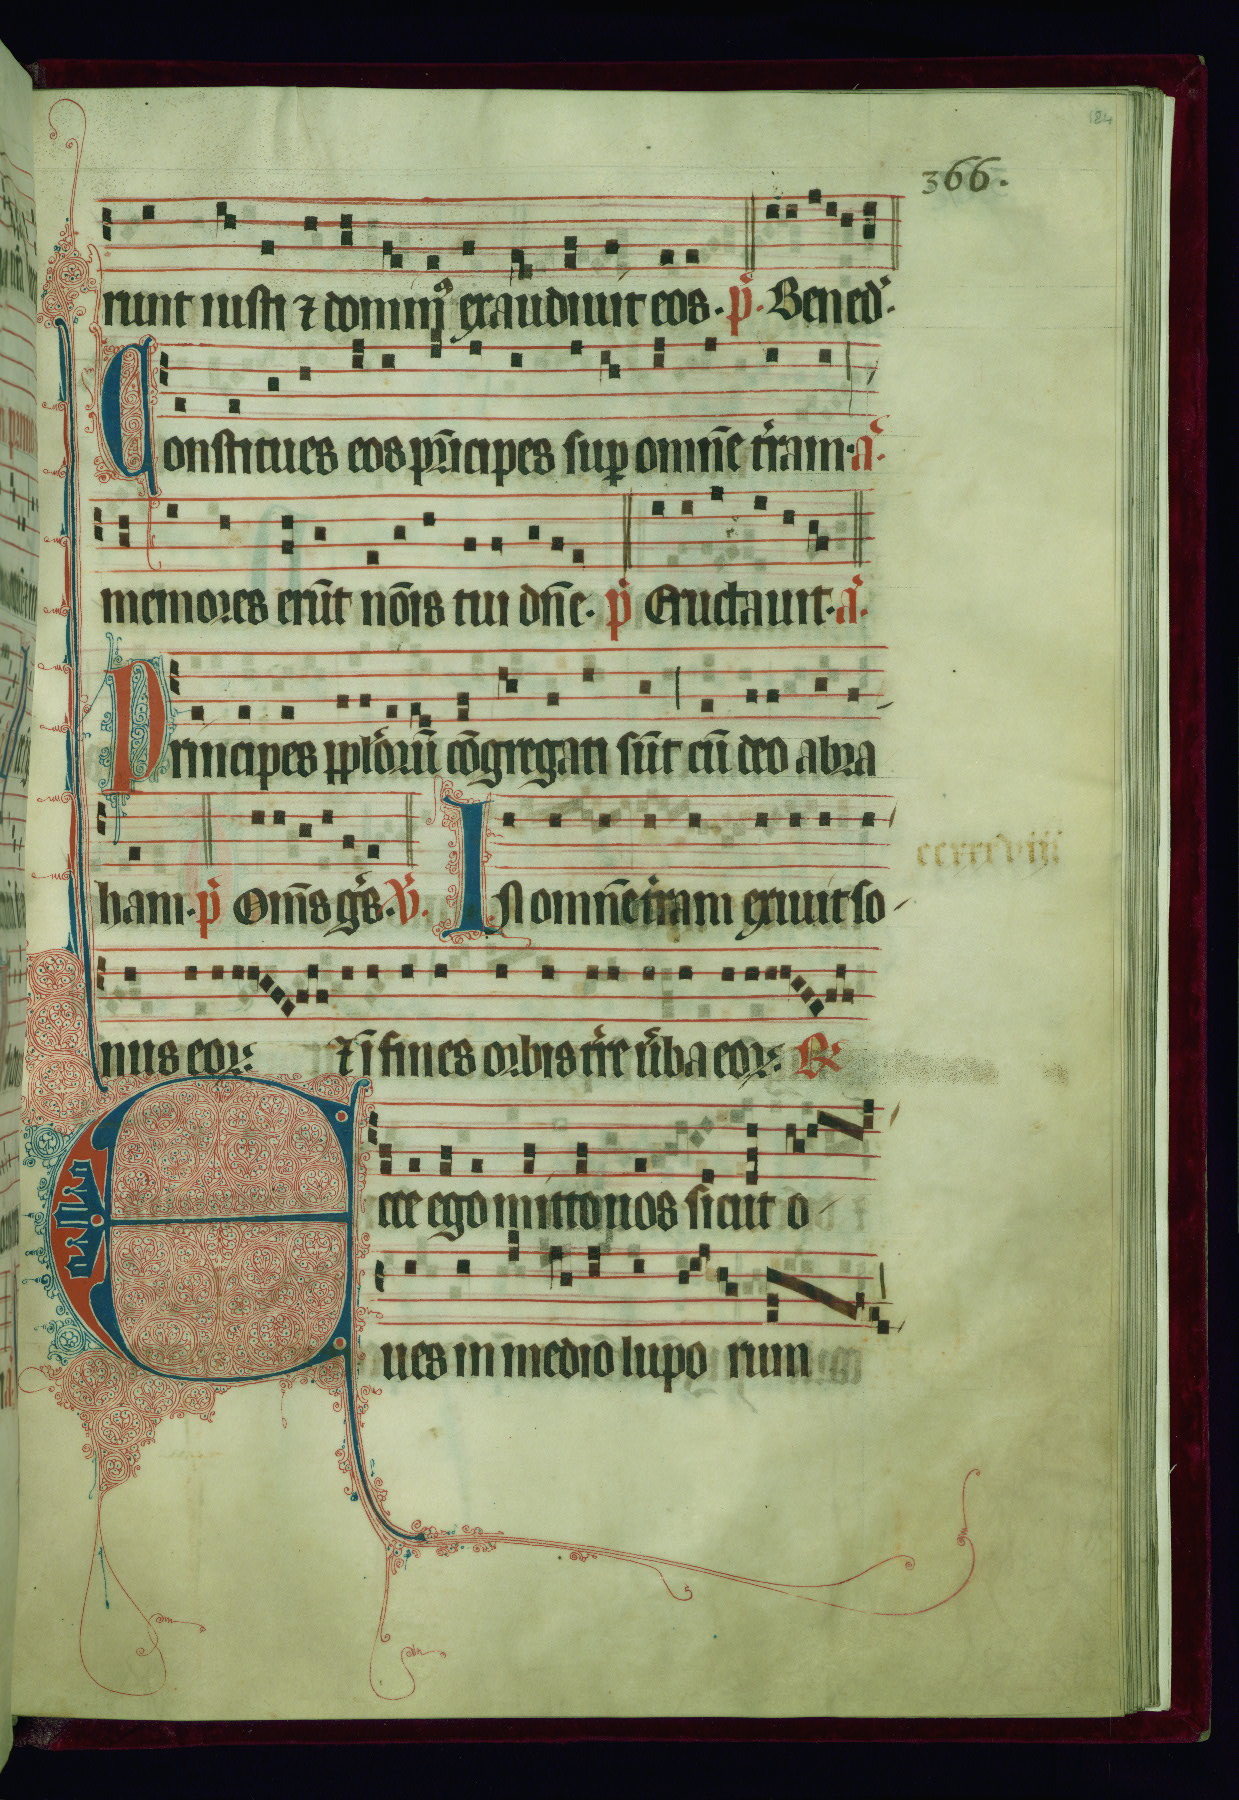 184
366.
runt iusti ⁊ dominꝰ exaudiuit eos. p̃. Bened̃.
Constitues eos p̃ncipes sup omn̄e t̃ram. ã.
memores erūt nōis tui dn̄e. p̃ Eructauit. ã.
Principes pplo̓rū cōgregati sūt cū deo abra
ham. p̃ Om̄s gs̃. V̓. IN omn̄e t̃ram exiuit so
nus eoꝝ: ⁊ ī fines orbis t̃re ũba eoꝝ: ℟
ccccxviiij
Ecce ego mitto uos sicut o
ues in medio lupo rum